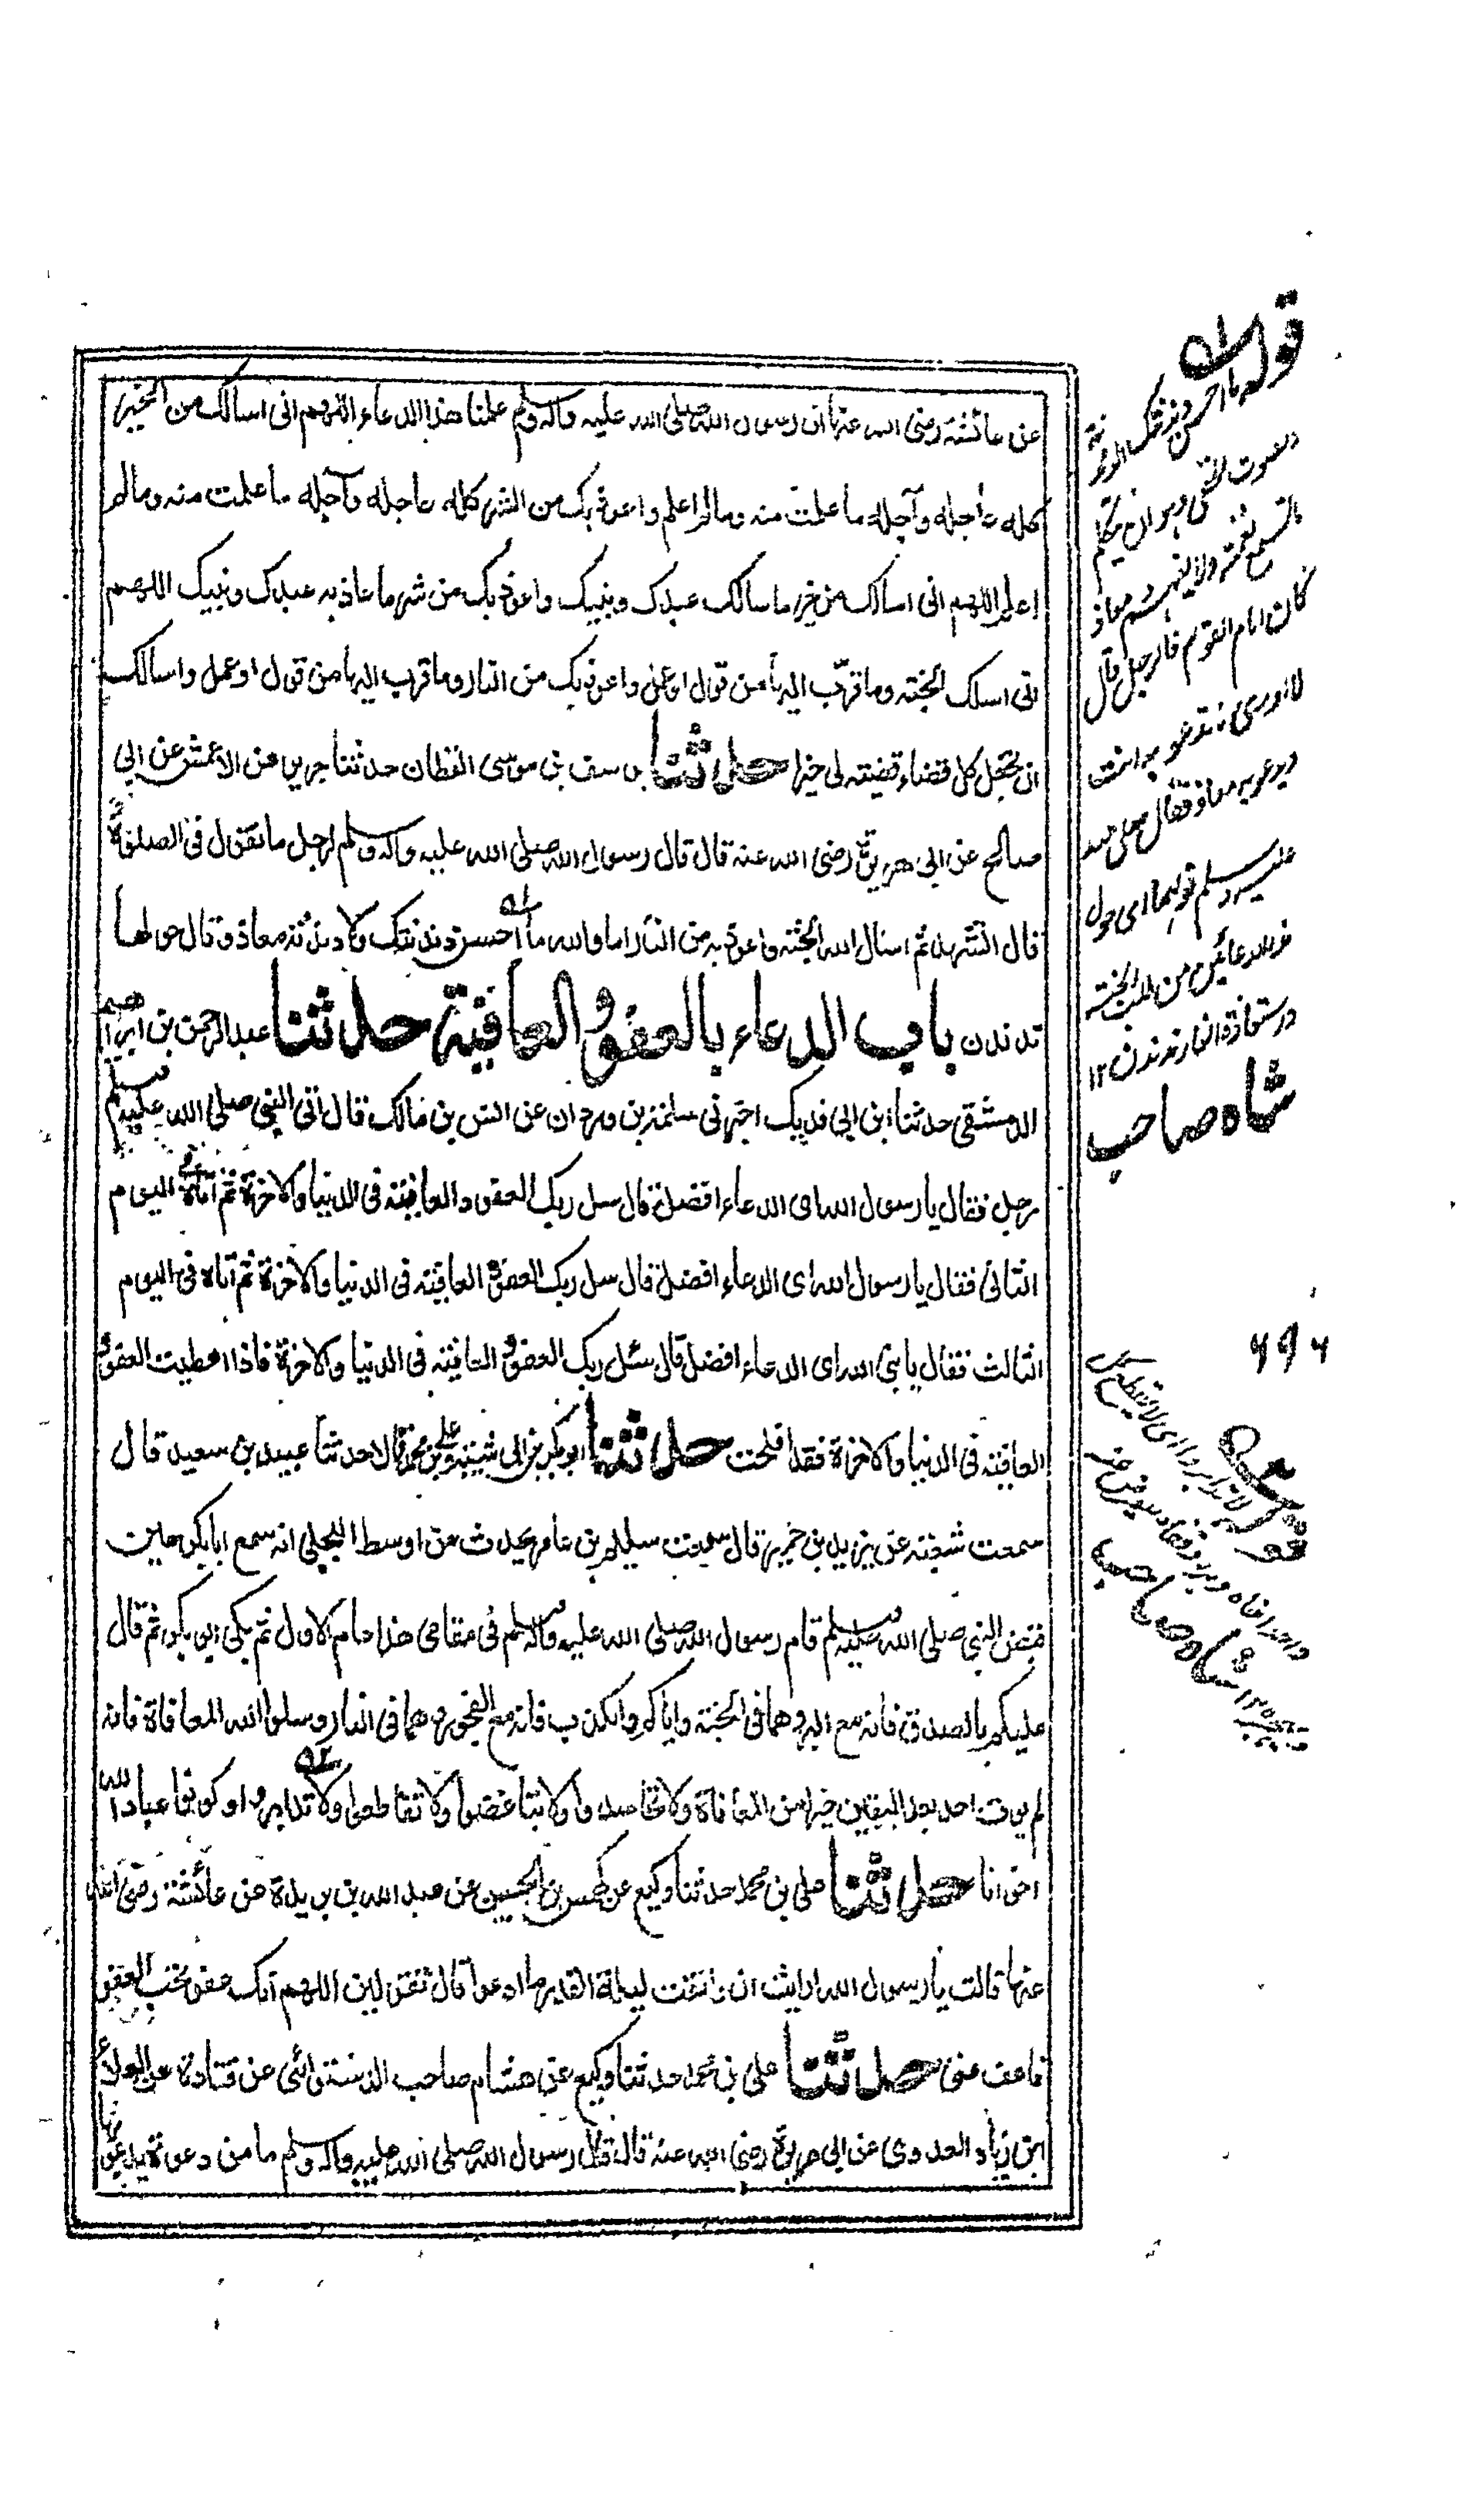 عن عائشة رضى الله عنها ان رسول الله صلى الله عليه وآله وسلم علمنا هذا الدعاء اللهم انى اسالك من الخير
كله عاجله وآجله ما علمت منه وما لم اعلم واعوذ بك من الشر كله عاجله وآجله ما علمت منه وما لم
اعلم اللهم انى اسالك من خير ما سالك عبدك ونبيك واعوذ بك من شر ما عاذ به عبدك ونبيك اللهم
انى اسلك الجنة وما قرب اليها من قول او عمل واعوذ بك من النار وما قرب اليها من قول او عمل واسالك
ان تجعل كل قضاء قضيته لى خيرا حدثنا يوسف بن موسى القطان حدثنا جرير عن الاعمش عن ابى
صالح عن ابى هريرة رضى الله عنه قال قال رسول الله صلى الله عليه وآله وسلم لرجل ما تقول فى الصلوة
قال اتشهد ثم اسئال الله الجنة واعوذ به من النار اما والله ما احسن دندنتك ولا دندنة معاذ وقال حولها
ندندن باب الدعاء بالعفو والعافية حدثنا عبد الرحمن بن ابراهيم
الدمشقى حدثنا ابن ابى فديك اخبرنى سلمة بن وردان عن انس بن مالك قال اتى النبى صلى الله عليه وسلم
رجل فقال يا رسول الله اى الدعاء افضل قال سل ربك العفو والعافية فى الدنيا والاخرة ثم اتاه فى اليوم
الثانى فقال يا رسول الله اى الدعاء افضل قال سل ربك العفو والعافية فى الدنيا والاخرة ثم اتاه فى اليوم
الثالث فقال يا نبى الله اى الدعاء افضل قال سئل ربك العفو والعافية فى الدنيا والاخرة فاذا اعطيت العفو و
العافية فى الدنيا والاخرة فقد افلحت حدثنا ابو بكر بن ابى شيبة وعلى بن محمد قالا حدثنا عبيد بن سعيد قال
سمعت شعبة عن يزيد بن خمير قال سمعت سليم بن عامر يحدث عن اوسط البجلى انه سمع ابا بكر حين
قبض النبى صلى الله عليه وسلم قام رسول الله صلى الله عليه وآله وسلم فى مقامى هذا عام الاول ثم بكى ابو بكر ثم قال
عليكم بالصدق فانه مع البر وهما فى الجنة واياكم والكذب فانه مع الفجور وهما فى النار وسلوا الله المعافاة فانه
لم يوت احد بعد اليقين خيرا من المعافاة ولا تحاسدوا ولا تباغضوا ولا تقاطعوا ولا تدابروا وكونوا عباد الله
اخوانا حدثنا على بن محمد حدثنا وكيع عن كهمس بن الحسين عن عبد الله بن بريدة عن عائشة رضى الله
عنها قالت يا رسول الله ارايت ان وافقت ليلة القدر ما ادعوا قال تقولين اللهم انك عفو تحب العفو
فاعف عنى حدثنا على بن محمد حدثنا وكيع عن هشام صاحب الدستوائى عن قتادة عن العلاء
ابن زياد العدوى عن ابى هريرة رضى الله عنه قال قال رسول الله صلى الله عليه وآله وسلم ما من دعوة يدعو بها
قوله ما احسن دندنتك الدندنة
كان امام القوم فالرجل قال
لا ادرى ما تدعو به انت
شاه صاحب
۶۹۶
شاه صاحب